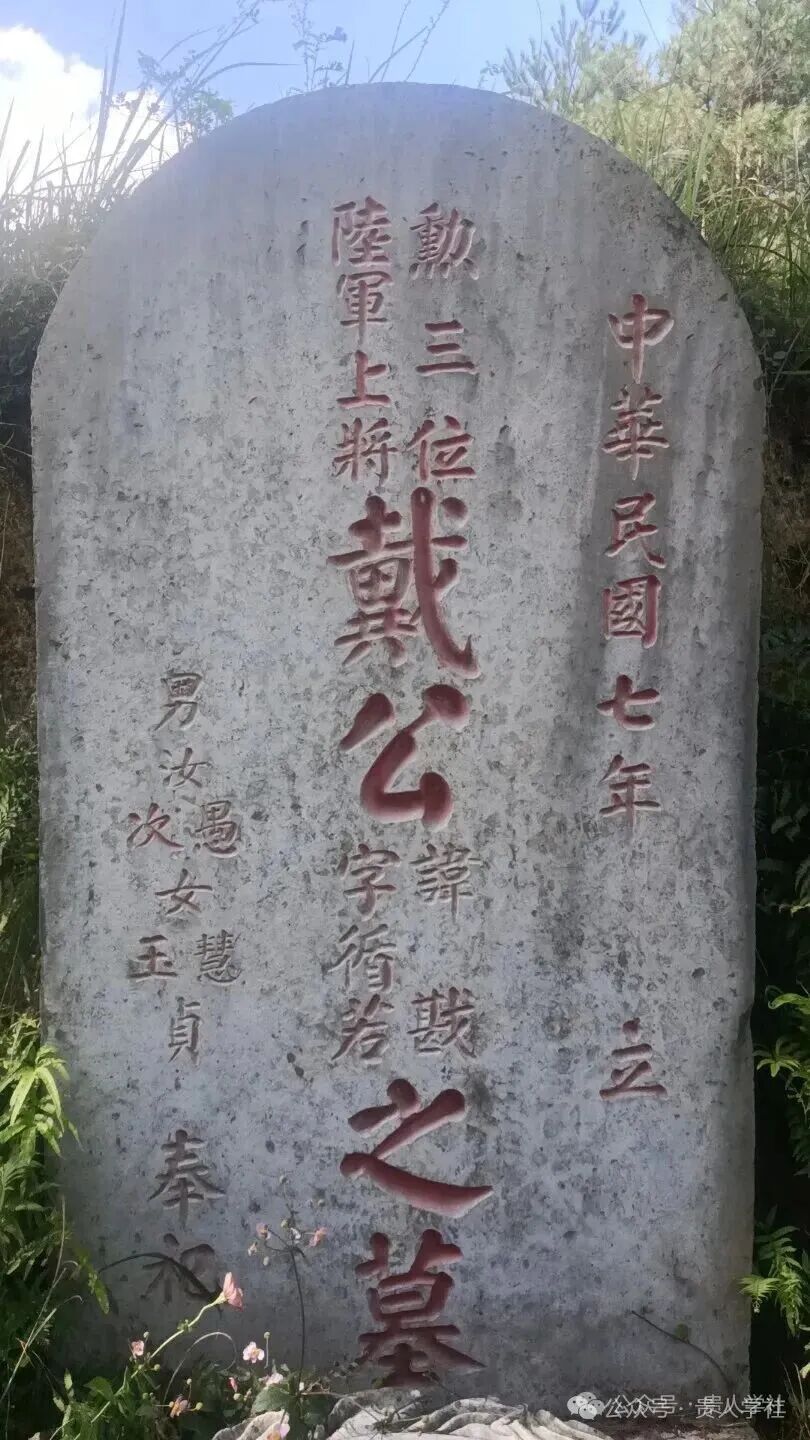 中華民國七年 立
勳三位
陸軍上將
戴公
諱戡
字循若
之墓
男汝愚
次女慧貞
玉
奉祀
公众号·贵人学社